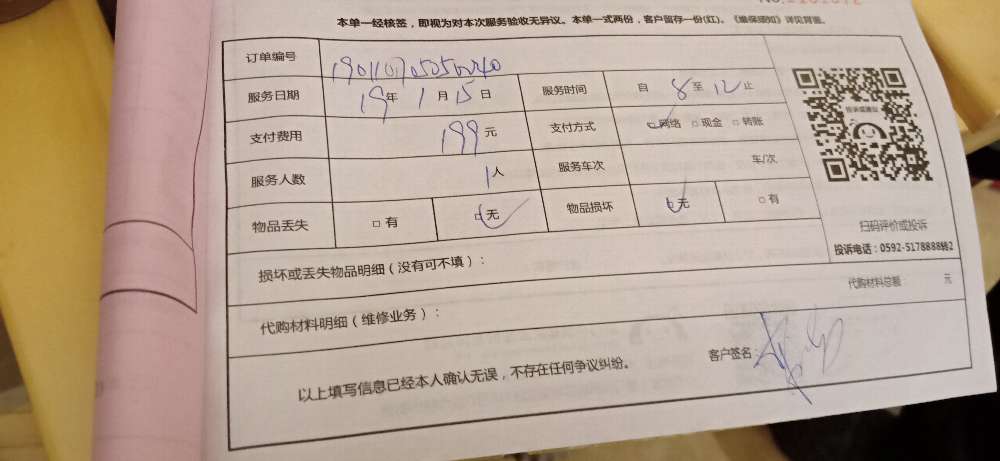 本单一经核签，即视为对本次服务验收无异议。本单一式两份，客户留存一份(红)。《维保须知》详见背面。
订单编号 1901107050500240
服务日期 19年 1月 15日 服务时间 自 8 至 12 止
支付费用 199元 支付方式 ☑网络 □现金 □转账
服务人数 1人 服务车次 车/次
物品丢失 □有 ☑无 物品损坏 ☑无 □有
投诉或建议
扫码评价或投诉
投诉电话：0592-5178888
损坏或丢失物品明细（没有可不填）：
代购材料明细（维修业务）： 代购材料总额： 元
以上填写信息已经本人确认无误，不存在任何争议纠纷。 客户签名：